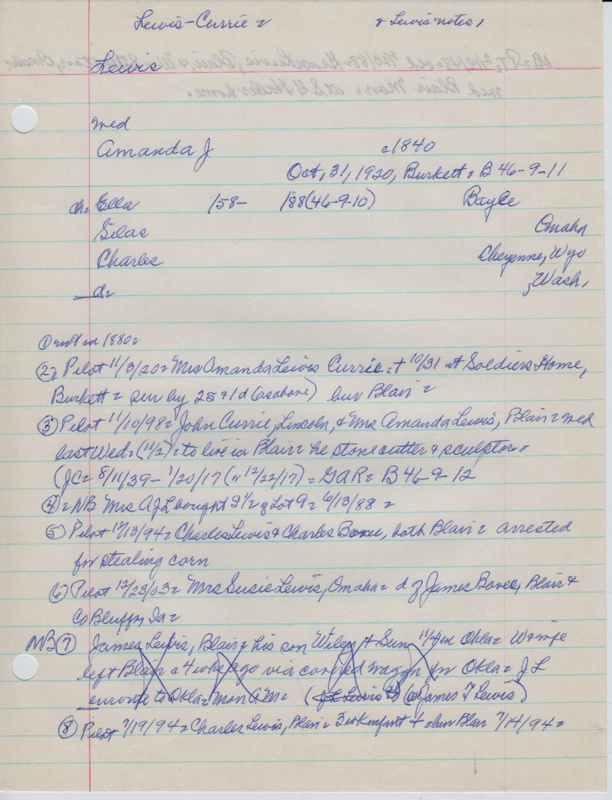 Lewis-Currie = & Lewis notes,
Lewis
med
Amanda J c1840
Oct, 31, 1920, Burkett = B 46-9-11
ch = Ella /58- /88 (46-9-10) Bayle
Silas Omaha
Charles Cheyenne, Wyo
d = , Wash,
① not in 1880=
② = Pilot 11/3/20 = Mrs Amanda Lewis Currie = + 10/31 at Soldiers Home,
Burkett = sur by 2s & 1d (as above) bur Blair =
③ Pilot 11/10/98 = John Currie, Lincoln, & Mrs Amanda Lewis, Blair = med
last Wed = (11/2) = to live in Blair = he stone cutter & sculptor =
(JC = 8/11/39 - 1/20/17 (or 12/22/17) = GAR = B 46-9-12
④ = NB Mrs A J L bought S 1/2 of Lot 9 = 6/13/88 =
⑤ Pilot 12/13/94 = Charles Lewis & Charles both Blair = arrested
for stealing corn
⑥ Pilot 12/23/03 = Mrs Susie Lewis, Omaha = d of James Bovee, Blair &
Co Bluffs, Ia =
NB ⑦ James Lewis, Blair = his son + Sun 11/4 in Okla =
left Blair a 4 wks ago via covered wagon for Okla = J L
enroute to Okla = Mon AM = (J L Lewis (or James T Lewis)
⑧ Pilot 7/19/94 = Charles Lewis, Blair = infant + = bur Blair 7/14/94 =